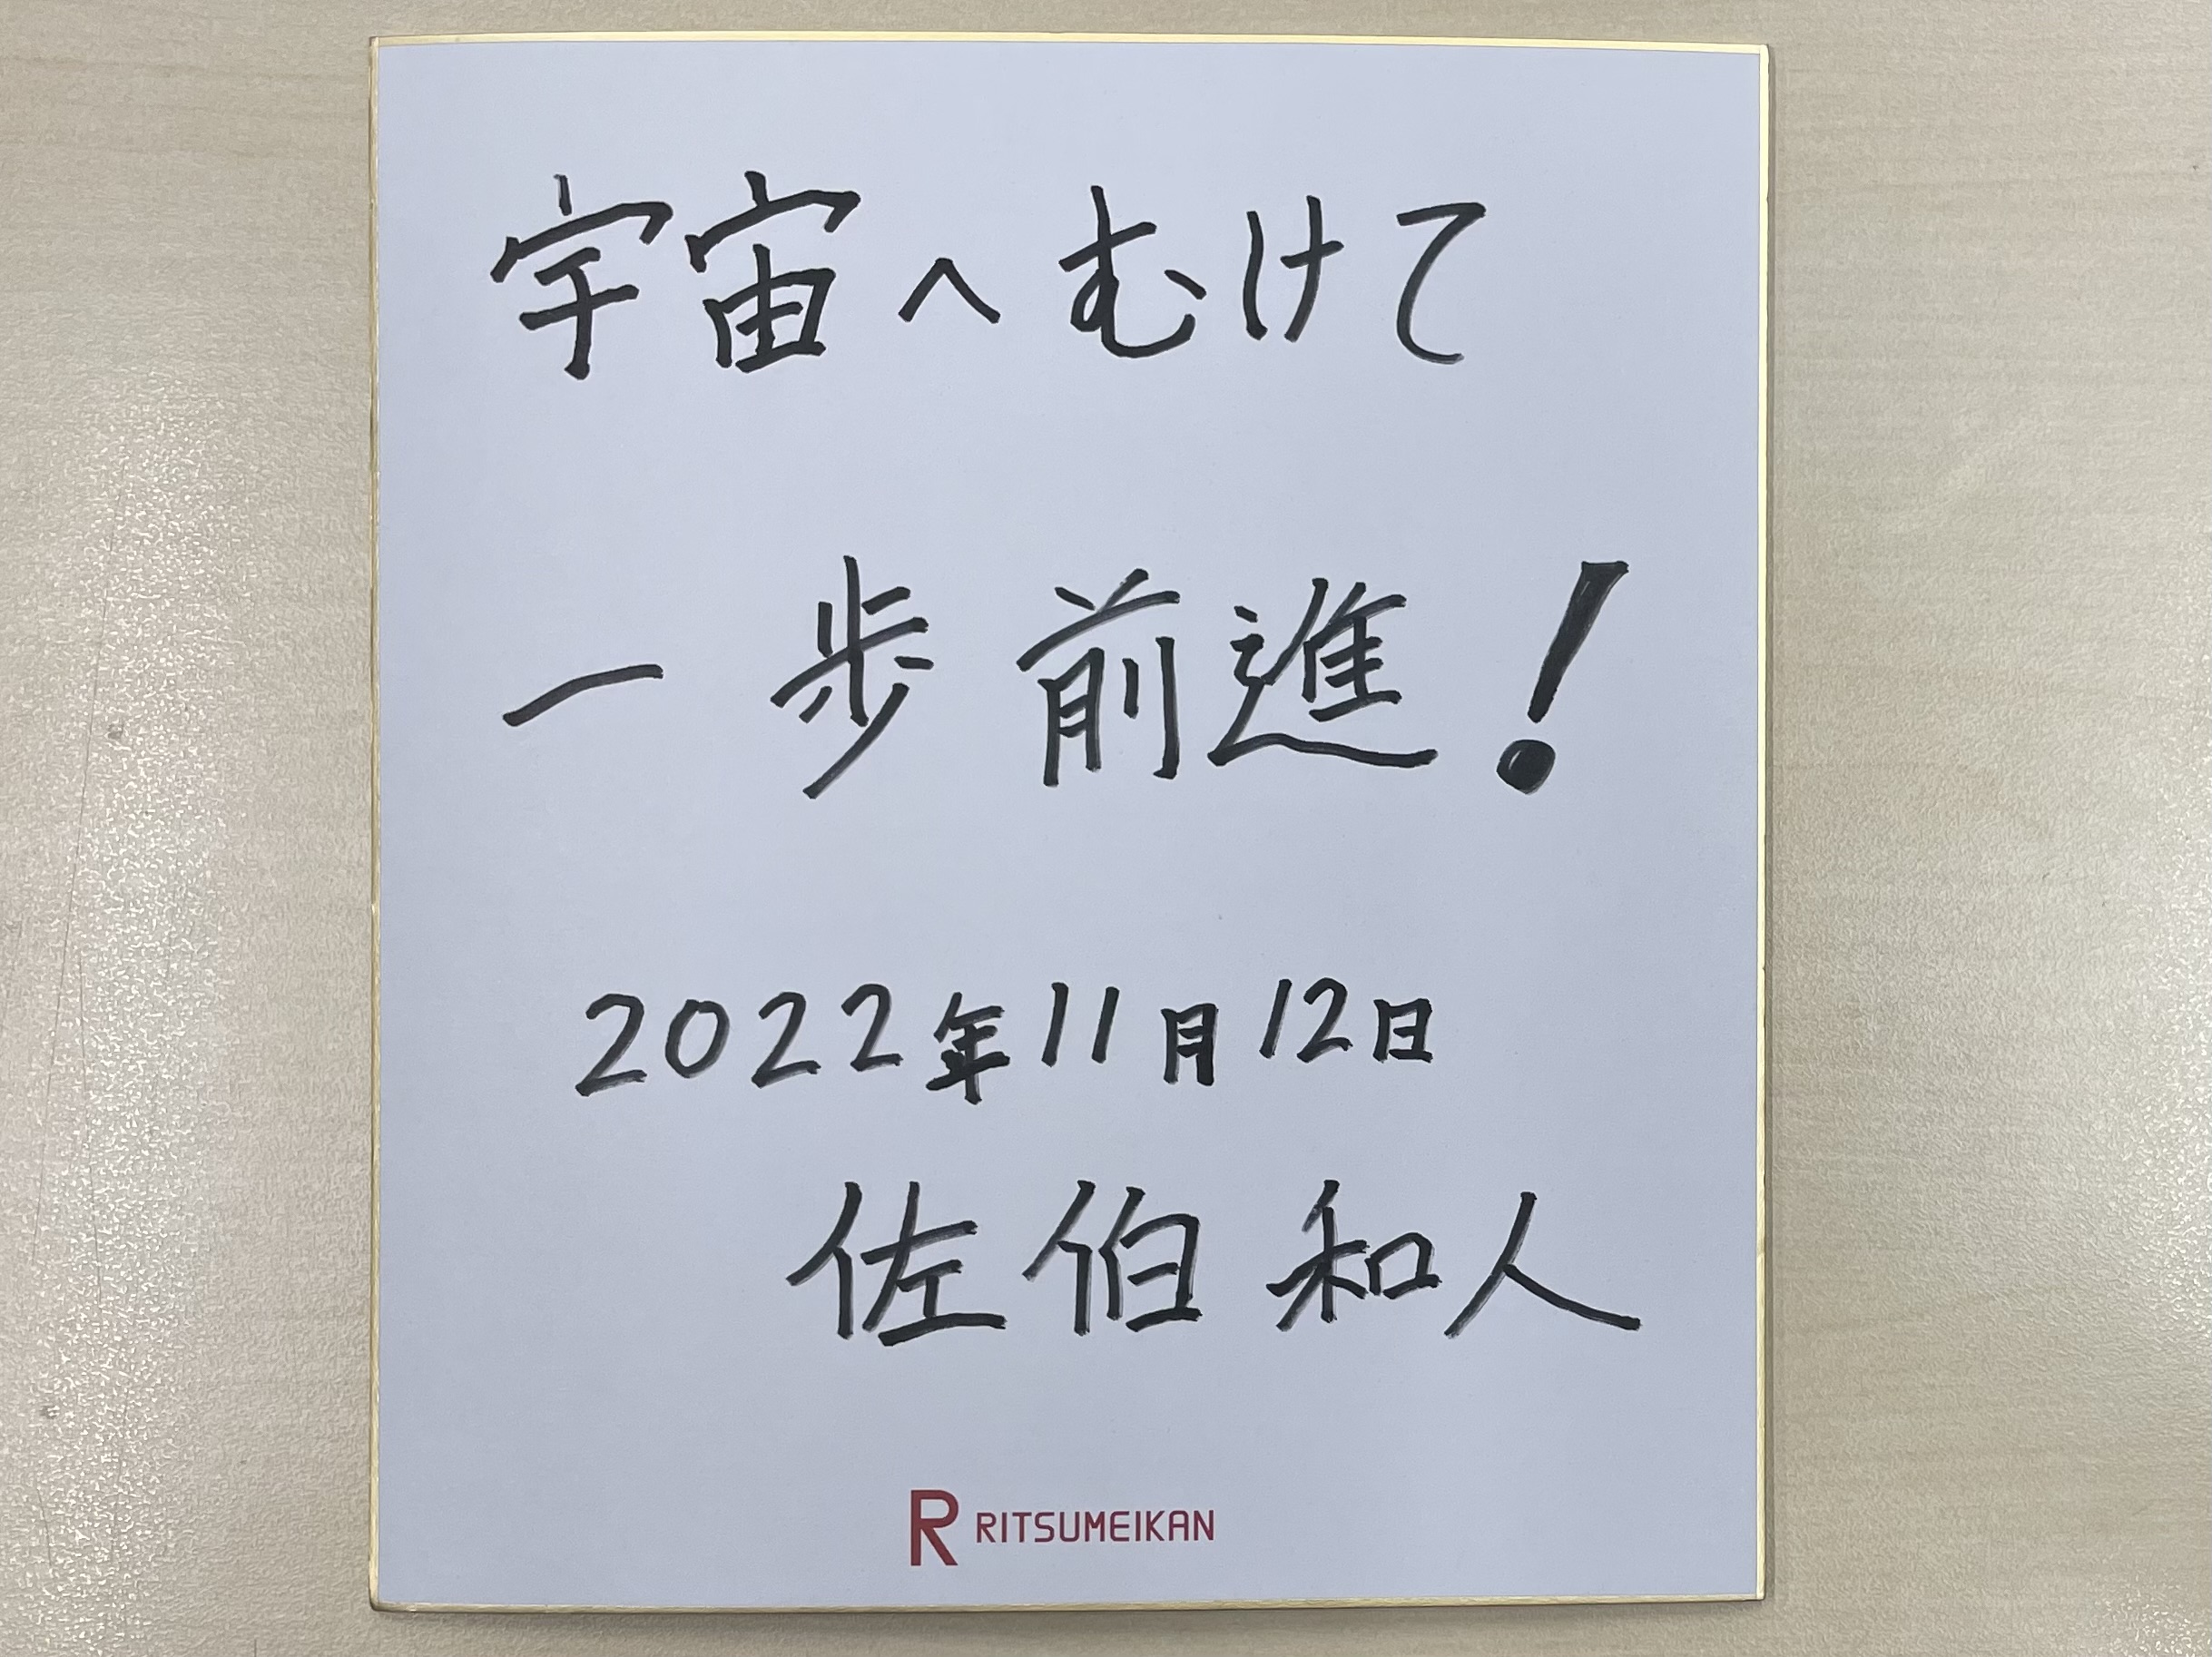 宇宙へむけて
一歩前進!
2022年11月12日
佐伯和人
R RITSUMEIKAN